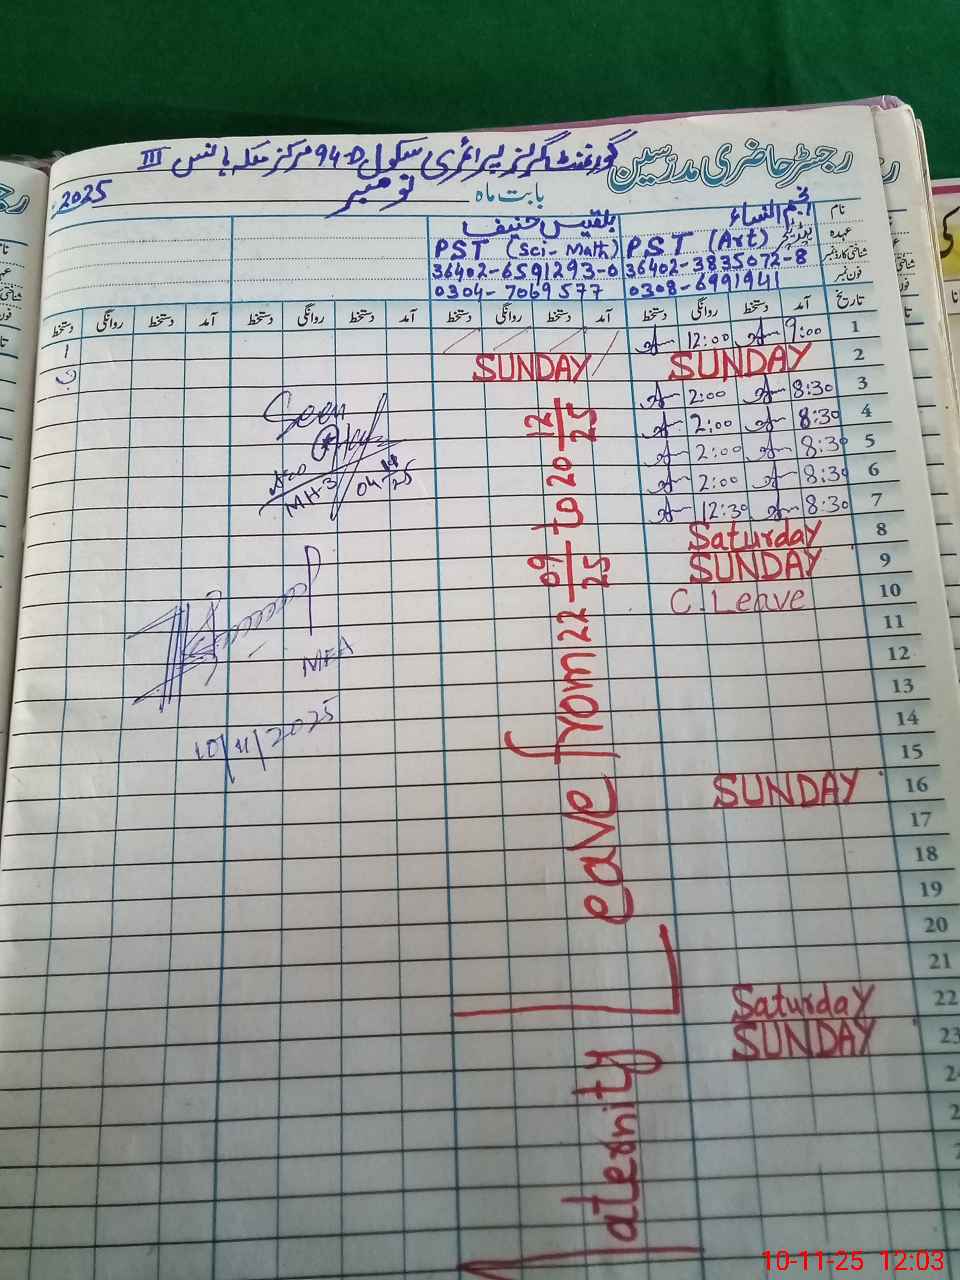 رجسٹر حاضری مدرسین گورنمنٹ گرلز پرائمری سکول 94-D مرکز منگہ ہانس III
بابت ماہ نومبر 2025
نام نجم النساء بلقیس حنیف
عہدہ PST (Art) PST (Sci-Math)
شناختی کارڈ نمبر 36402-3835072-8 36402-6591293-0
فون نمبر 0308-6991941 0304-7069577
تاریخ آمد دستخط روانگی دستخط آمد دستخط روانگی دستخط آمد دستخط روانگی دستخط آمد دستخط روانگی دستخط
1 9:00 12:00
2 SUNDAY SUNDAY
3 8:30 2:00
4 8:30 2:00
5 8:30 2:00
6 8:30 2:00
7 8:30 12:30
8 Saturday
9 SUNDAY
10 C. Leave
11
12
13
14
15
16 SUNDAY
17
18
19
20
21
22 Saturday
23 SUNDAY
aternity Leave from 22 09/25 to 20 12/25
Seen
MH-3
04 11/25
MEA
10/11/2025
10-11-25 12:03